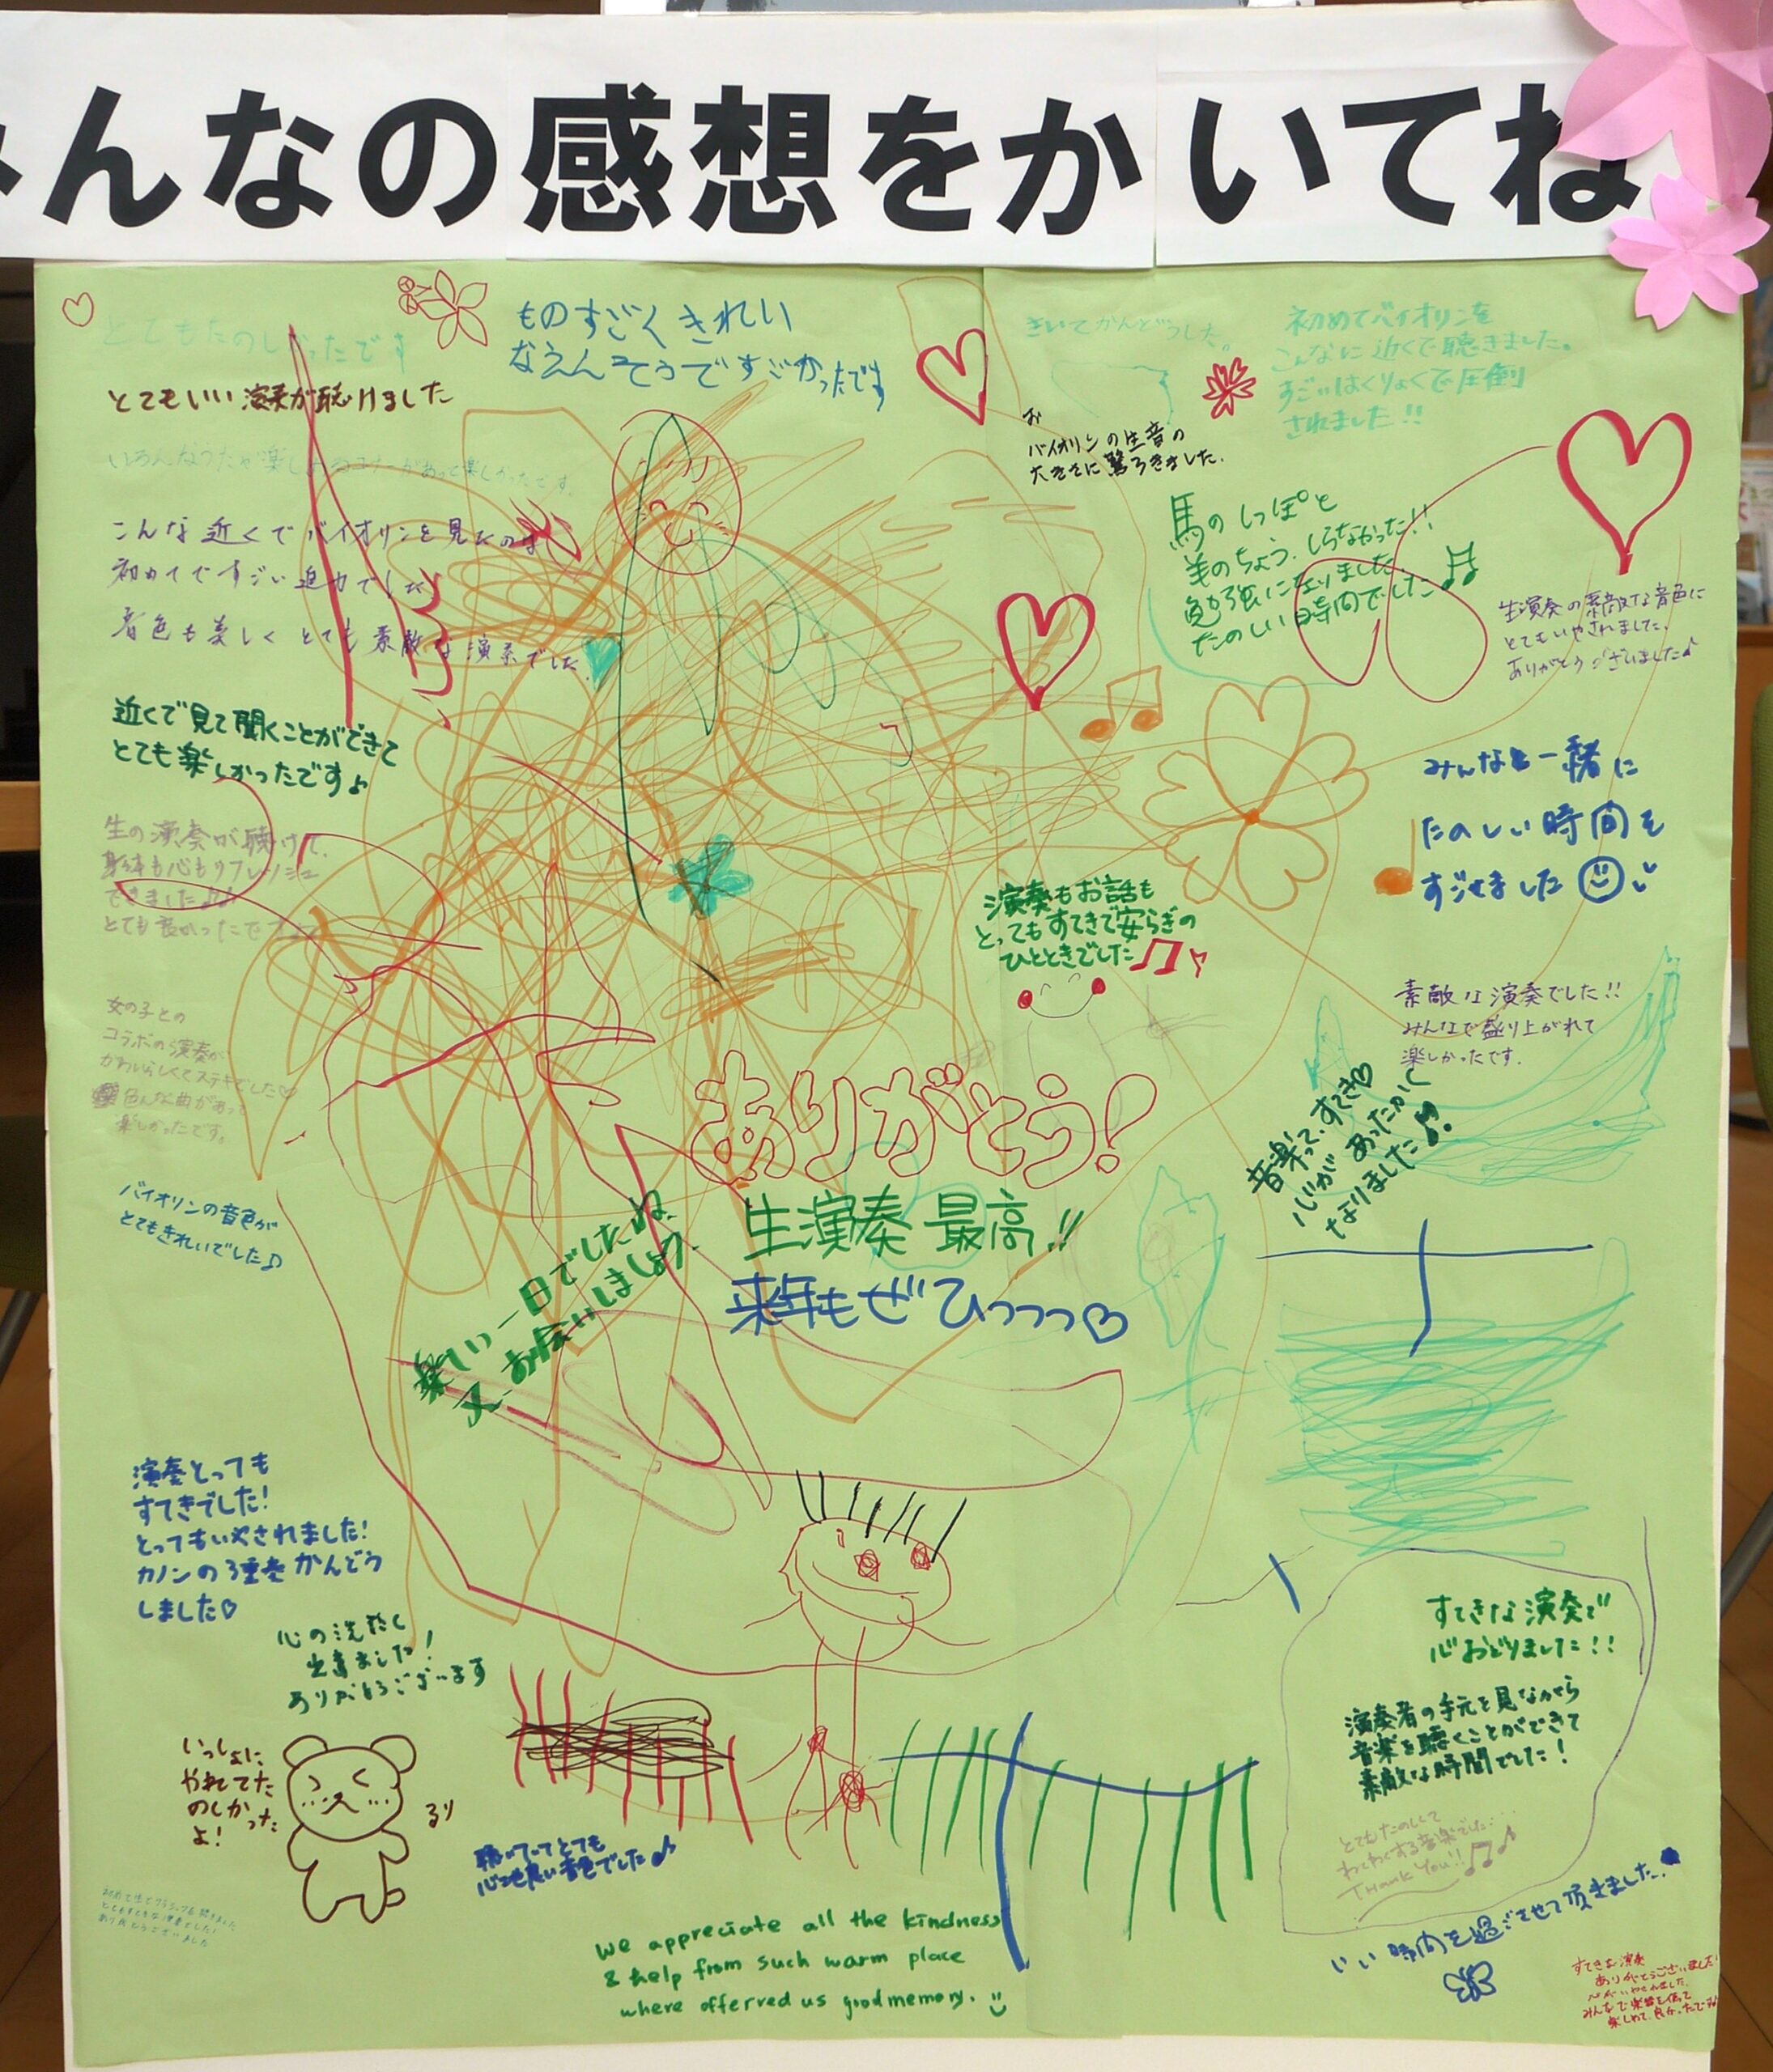 みんなの感想をかいてね
とてもたのしかったです
とてもいい演奏が聴けました
ものすごくきれい
なえんそうですごかったです
きいてかんどうした。
初めてバイオリンを
こんなに近くで聴きました。
すごいはくりょくで圧倒
されました!!
お
バイオリンの生音の
大きさに驚ろきました。
馬のしっぽと
羊のちょう、しらなかった!!
勉強になりました。
たのしい時間でした
生演奏の素敵な音色に
とてもいやされました。
ありがとうございました♪
こんな近くでバイオリンを見たのは
初めてですごい迫力でした
音色も美しくとても素敵な演奏でした
近くで見て聞くことができて
とても楽しかったです♪
生の演奏が聴けて、
身体も心もリフレッシュ
できました♪♪
とても良かったです
みんなと一緒に
たのしい時間を
すごせました
演奏もお話も
とってもすてきで安らぎの
ひとときでした
素敵な演奏でした!!
みんなで盛り上がれて
楽しかったです.
女の子との
コラボの演奏が
かわいらしくてステキでした♡
色んな曲があって
楽しかったです。
音楽って、すてき♡
心が あったかく
なりました♪
ありがとう!
生演奏 最高!!
来年もぜひっっっ♡
バイオリンの音色が
とてもきれいでした♪
楽しい一日でしたね。
又、お会いしましょう
演奏とっても
すてきでした!
とってもいやされました!
カノンの3重奏かんどう
しました♡
心の洗たく
出来ました!
ありがとうございます
いっしょに
やれてた
のしかった
よ!
るり
聴いていてとても
心地良い音色でした♪
すてきな演奏で
心おどりました!!
演奏者の手元を見ながら
音楽を聴くことができて
素敵な時間でした!
とてもたのしくて
わくわくする音楽でした
Thank You!!
いい時間を過ごさせて頂きました。
We appreciate all the kindness
& help from such warm place
where offerred us good memory.
すてきな演奏
ありがとうございました!
みんなで楽器を使って